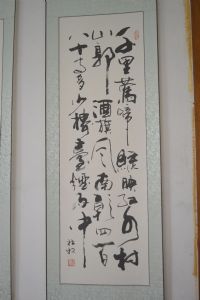 千里鶯啼綠映紅水村
山郭酒旗風南朝四百
八十寺多少樓臺煙雨中